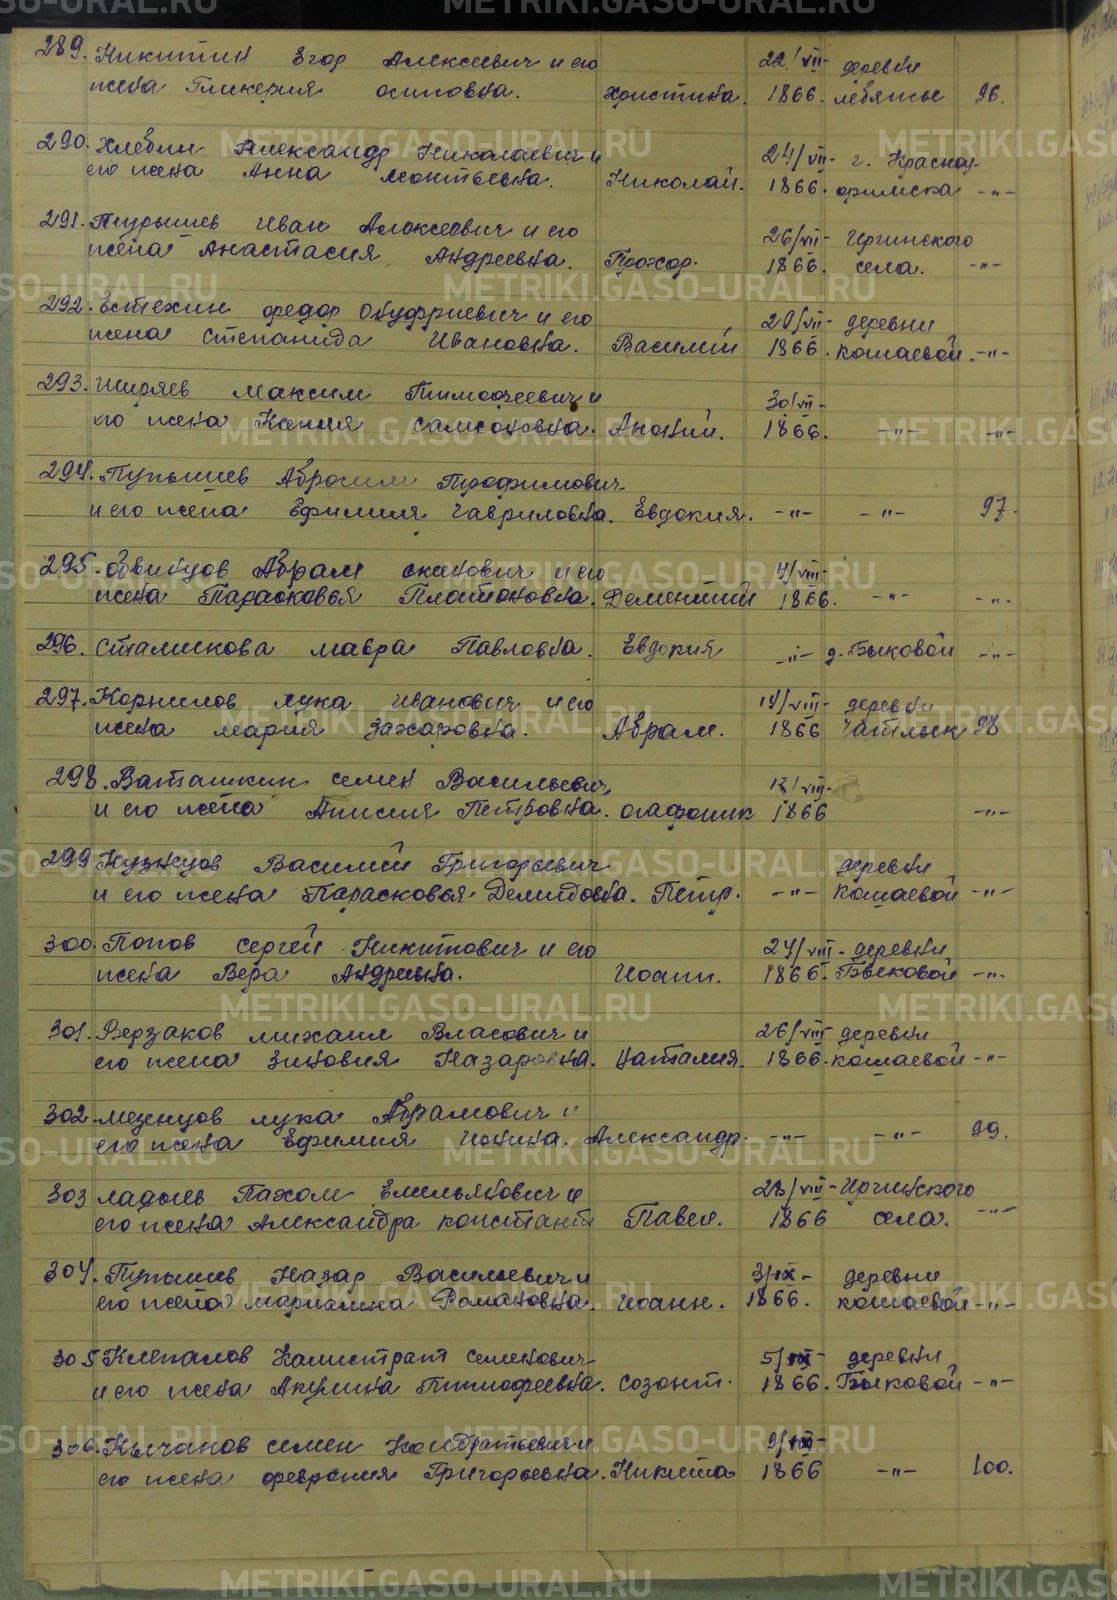 289. Никитин Егор Алексеевич и его
жена Гликерия осиповна. Христина. 22/VII- 1866. деревни лебяжье 96.
290. Хлебин Александр Николаевич и
его жена Анна леонтьевна. Николай. 24/VII- 1866. г. Красноуфимска -"-
291. Пурышев Иван Алексеевич и его
жена Анастасия Андреевна. Прохор. 26/VII- 1866. Иргинского села. -"-
292. Естехин федор Онуфриевич и его
жена Степанида Ивановна. Василий 29/VII- 1866. деревни кошаевой. -"-
293. Ширяев Максим Тимофеевич и
его жена Ксения самсоновна. Ананий. 30/VII- 1866. -"- -"-
294. Пупышев Абросим Трофимович
и его жена Ефимия Гавриловна. Евдокия. -"- -"- 97.
295. Абрам и его
жена Парасковья Платоновна. Дементий 4/VIII- 1866. -"- -"-
296. Стамикова мавра Павловна. Евдокия -"- д. Быковой -"-
297. Корнилов лука иванович и его
жена мария Захаровна. Абрам. 14/VIII- 1866 деревни Чатлык 98
298. Ваташкин семен Васильевич,
и его жена Анисия Петровна. агафоник 13/VIII- 1866 -"-
299 Кузнецов Василий Григорьевич
и его жена Парасковья Демидовна. Петр. -"- деревни Кошаевой -"-
300. Попов сергей Никитович и его
жена Вера Андреевна. Иоанн. 24/VIII- 1866. деревни Быковой -"-
301. Верзаков михаил Власович и
его жена Зиновия Назаровна. Наталия. 26/VIII- 1866. деревни кошаевой -"-
302. мезенцов лука Абрамович и
его жена Ефимия Ионина. Александр. -"- -"- 99.
303 ладыев Пахом Емельянович и
его жена Александра констант Павел. 28/VIII- 1866 Иргинского села. -"-
304. Пупышев Назар Васильевич и
его жена марианна Романовна. Иоанн. 3/IX- 1866. деревни кошаевой -"-
305 Клепалов Калистрат семенович
и его жена Акулина Тимофеевна. Созонт. 5/IX- 1866. деревни Быковой -"-
306. Кычанов семен Кондратьевич и
его жена феврония Григорьевна. Никита 9/IX- 1866 -"- 100.
METRIKI.GASO-URAL.RU